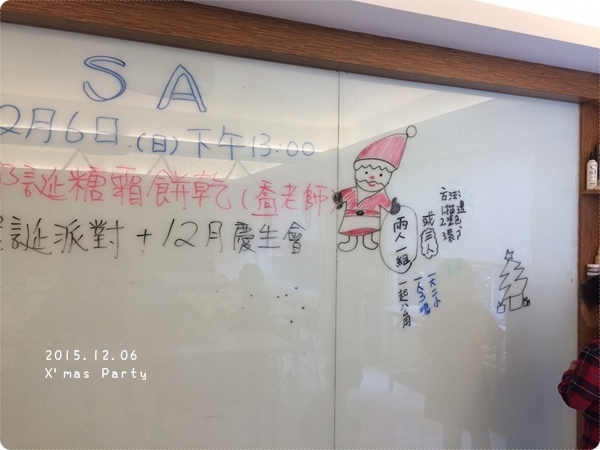 SA
2月6日.(日)下午13:00
誕糖霜餅乾(喬老師)
誕派對+12月慶生會
兩人一組
或三人
一起八角
方法:
2015.12.06
X'mas Party